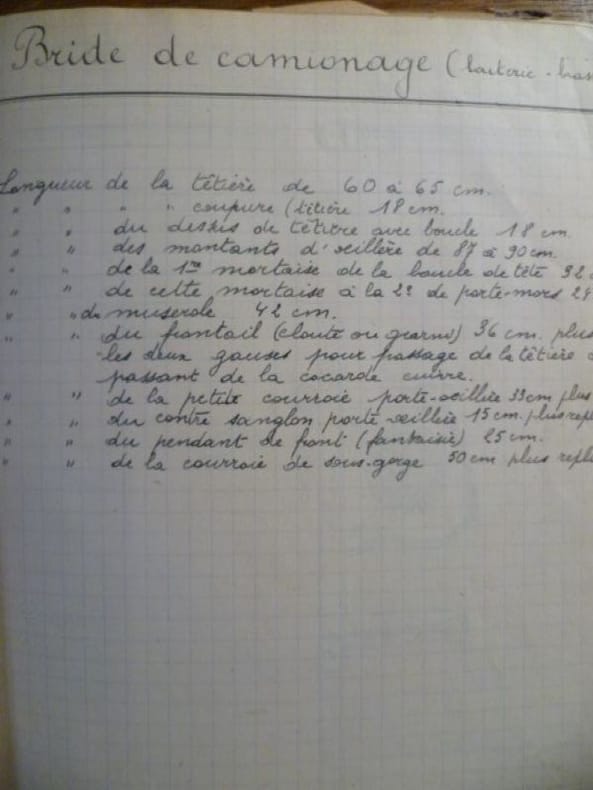 Bride de camionage (laiterie - bras
Longueur de la têtière de 60 à 65 cm.
" " " " coupure (têtière 18 cm.
" " du dessus de têtière avec boucle 18 cm.
" " des montants d'œillère de 87 à 90 cm.
" " de la 1re mortaise de la boucle de tête 32 c
" " de cette mortaise à la 2e de porte-mors 29
" " du muserole 42 cm.
" " du frontail (clouté ou garni) 36 cm. plus
les deux ganses pour passage de la têtière
passant de la cocarde cuivre.
" " de la petite courroie porte-œillère 33 cm plus
" " du contre sanglon porte œillère 15 cm. plus repl
" " du pendant de front (fantaisie) 25 cm.
" " de la courroie de sous-gorge 50 cm plus repl